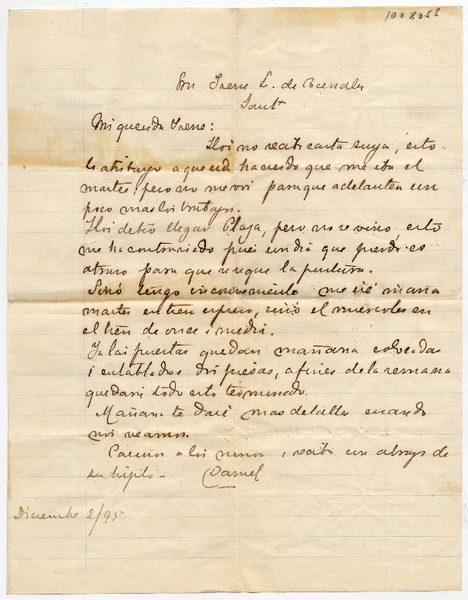 Irene L. de
Sant°
Mi querida Irene:
Hoi no recibi carta suya, esto
lo atribuyo a que ud haciendo que me iba el
martes; pero no me voi para que adelanten un
poco mas los trabajos.
Hoi debió llegar Plaza, pero no se vino, esto
me ha contrariado pues un dia que pierda es
atraso para que seque la pintura.
Sinó tengo inconveniente me iré mañana
martes en tren espreso, sinó el miercoles en
el tren de once i media.
Ya las puertas quedan mañana colocadas
i entablados dos piesas, a fines de la semana
quedará todo esto terminado.
Mañana te daré mas detalles cuando
nos veamos.
Carinos a los ninos, i recibe un abrazo de
su hijito.- Daniel
Diciembre 2/95